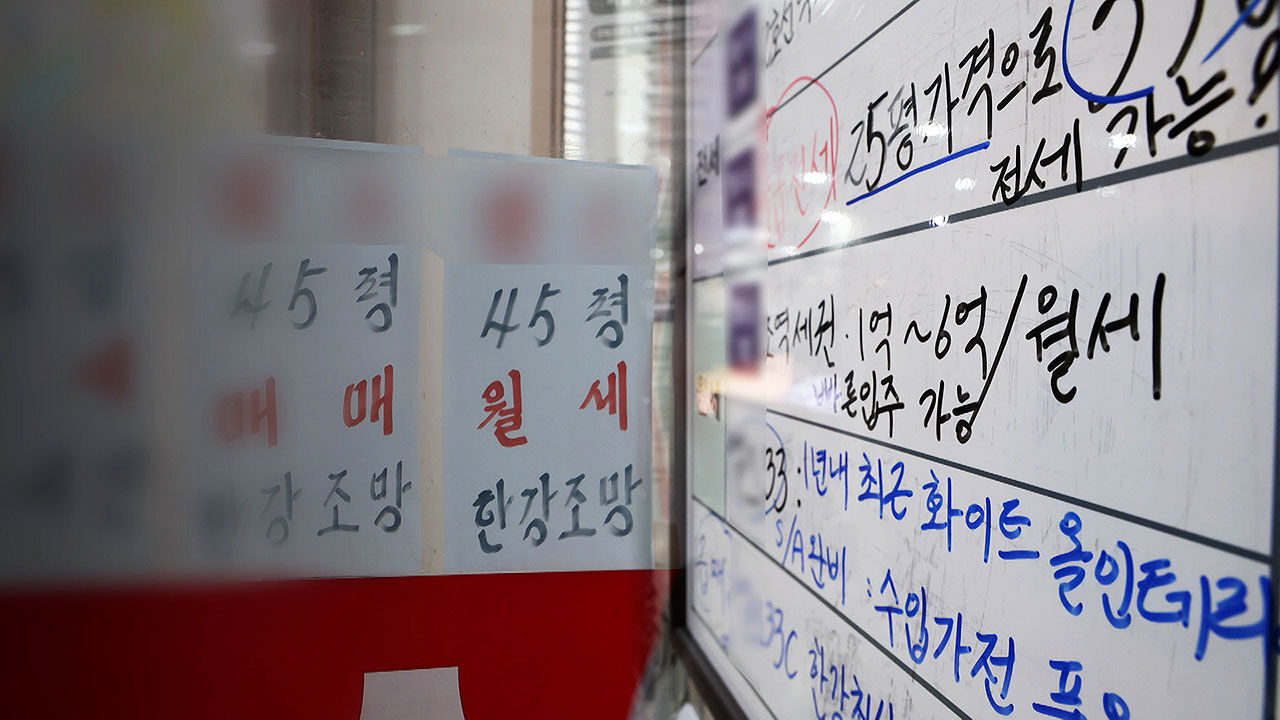 45평
매매
강조망
45평
월세
한강조망
전세
25평가격으로
전세 가능
역세권·1억~6억/월세
론입주 가능
33:1년내 최근 화이트 올인테리
S/A완비:수입가전
33C 한강